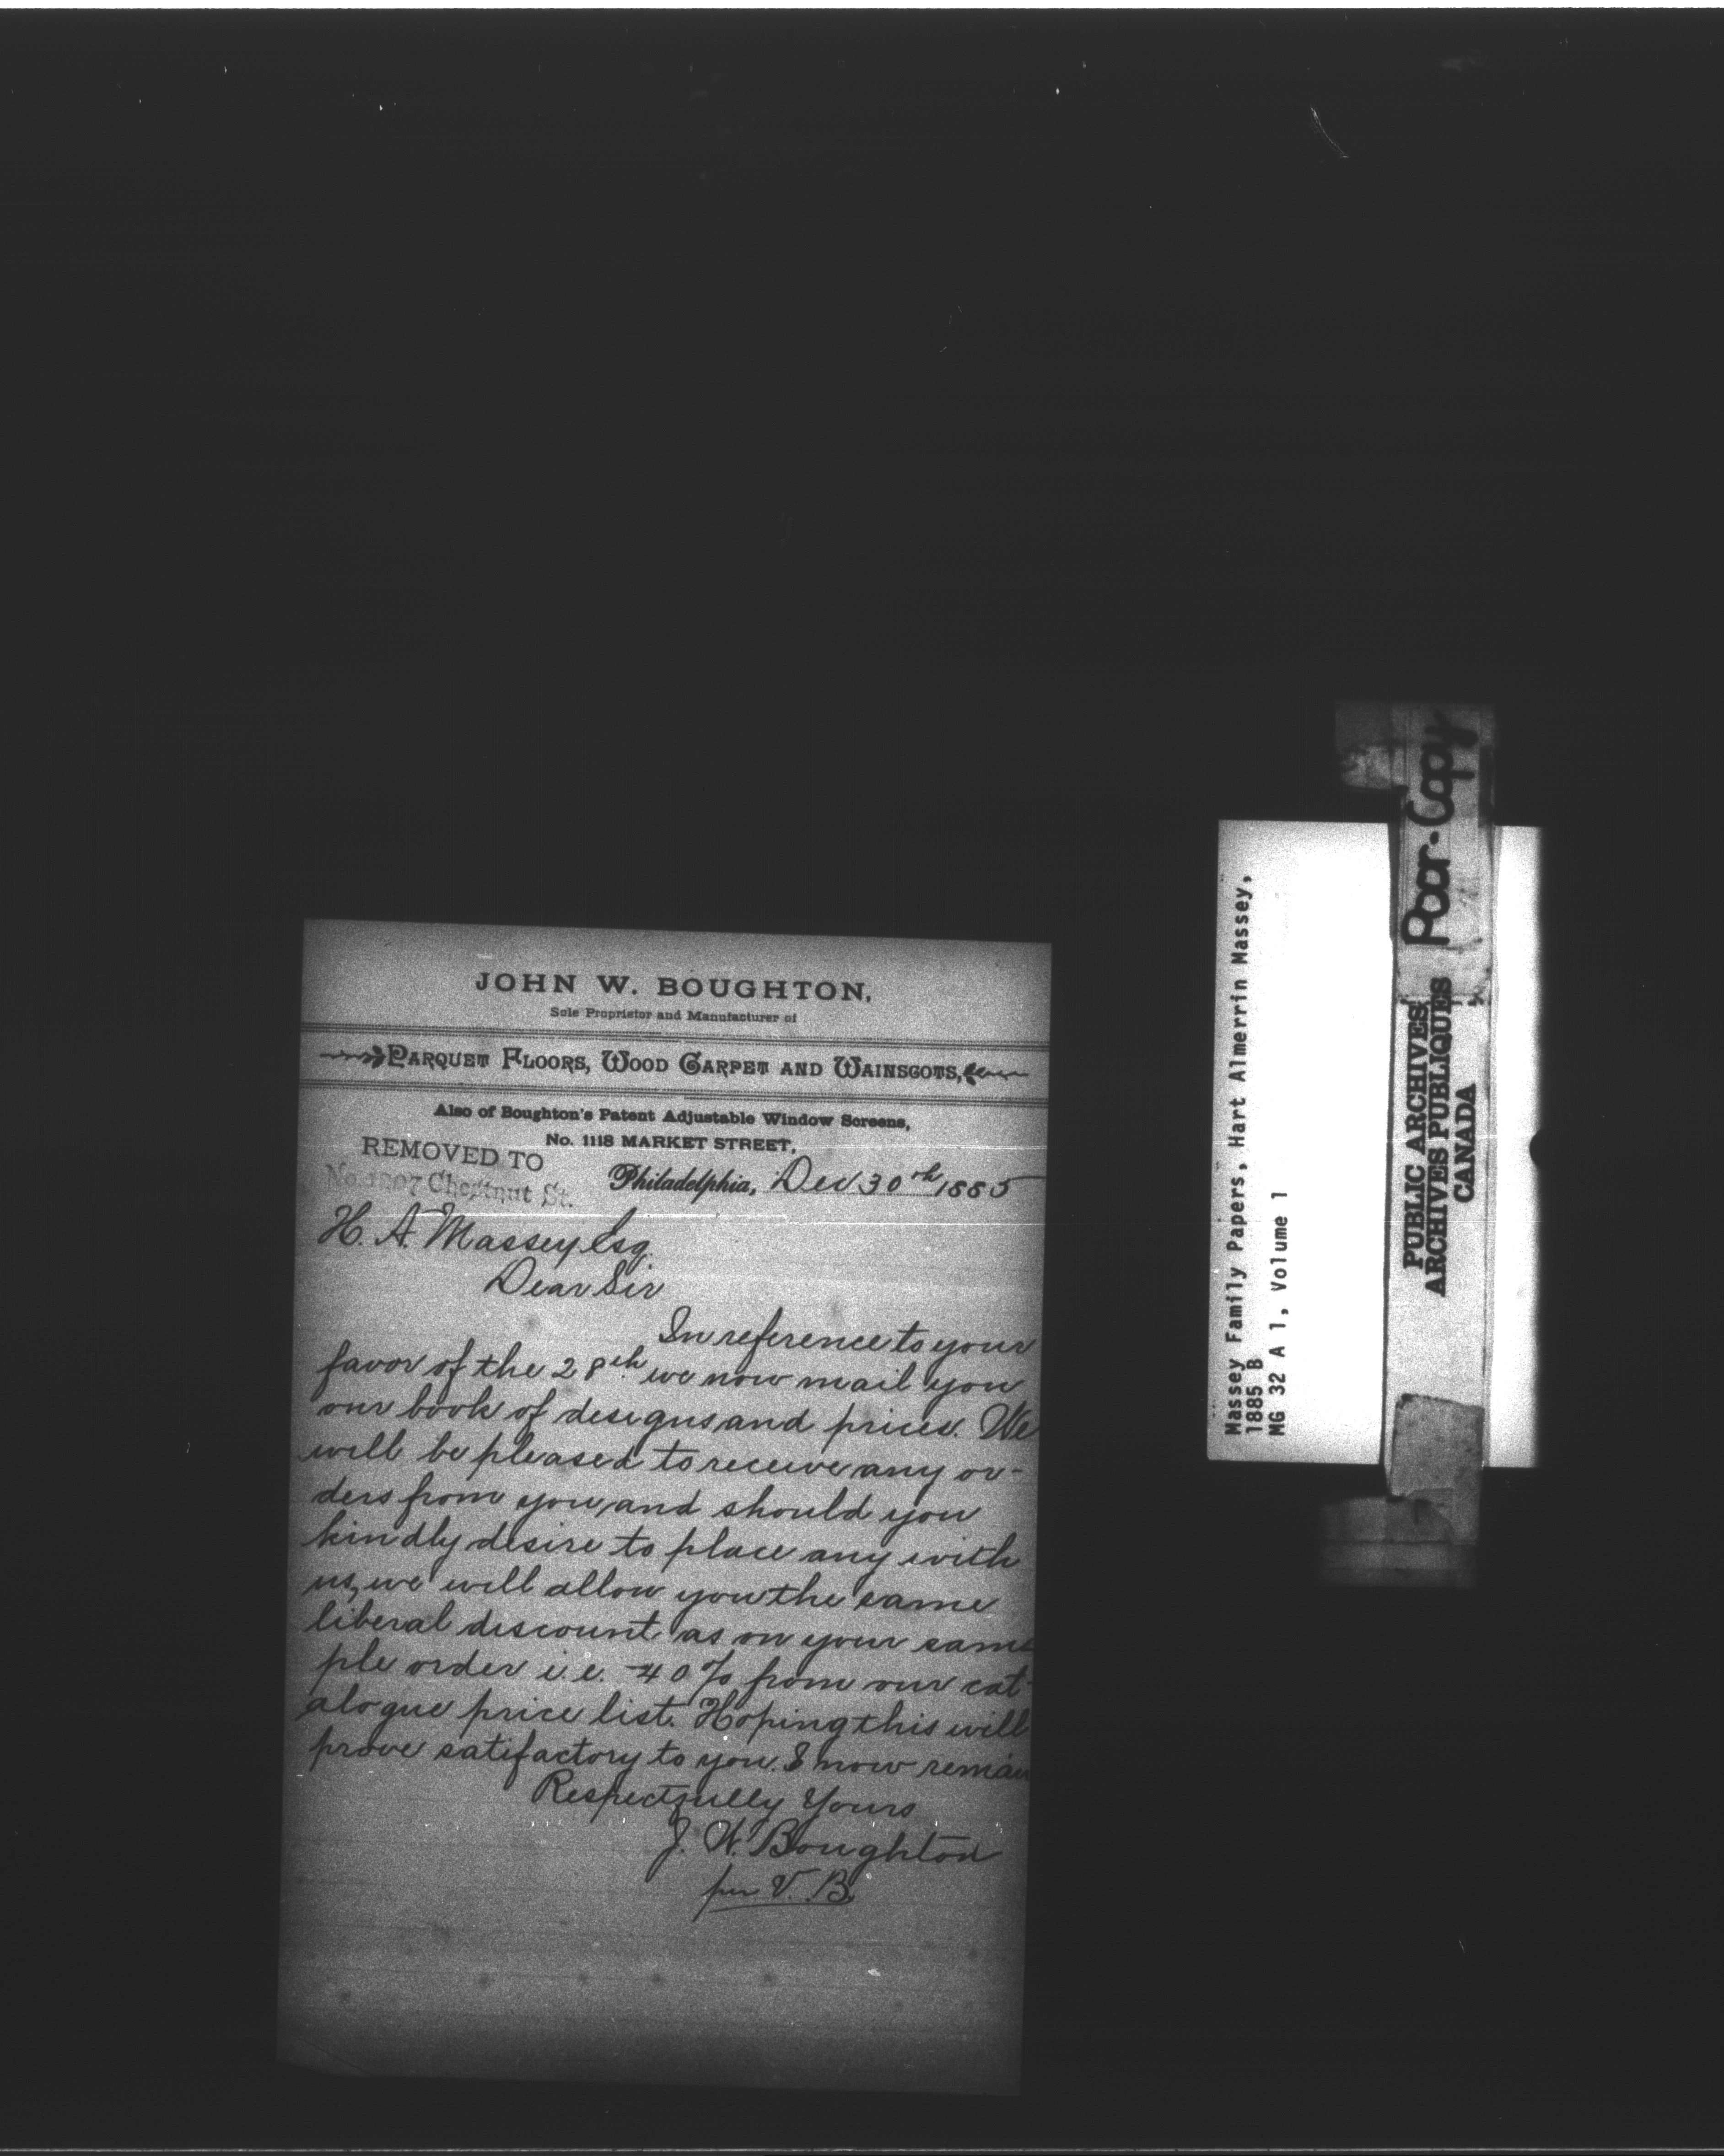 JOHN W. BOUGHTON,
Sole Proprietor and Manufacturer of
PARQUET FLOORS, WOOD CARPET AND WAINSCOTS,
Also of Boughton's Patent Adjustable Window Screens,
No. 1118 MARKET STREET,
REMOVED TO
No. Chestnut St.
Philadelphia, Dec 30th 1885
H. A. Massey Esq
Dear Sir
In reference to your
favor of the 28th we now mail you
our book of designs and prices. We
will be pleased to receive any or-
ders from you, and should you
kindly desire to place any with
us, we will allow you the same
liberal discount as on your sam-
ple order i.e. 40% from our cat-
alogue price list. Hoping this will
prove satifactory to you. I now remain
Respectfully Yours
J. W. Boughton
per V. B.
Massey Family Papers, Hart Almerrin Massey,
1885 B
MG 32 A 1, Volume 1
PUBLIC ARCHIVES
ARCHIVES PUBLIQUES
CANADA
Poor-Copy